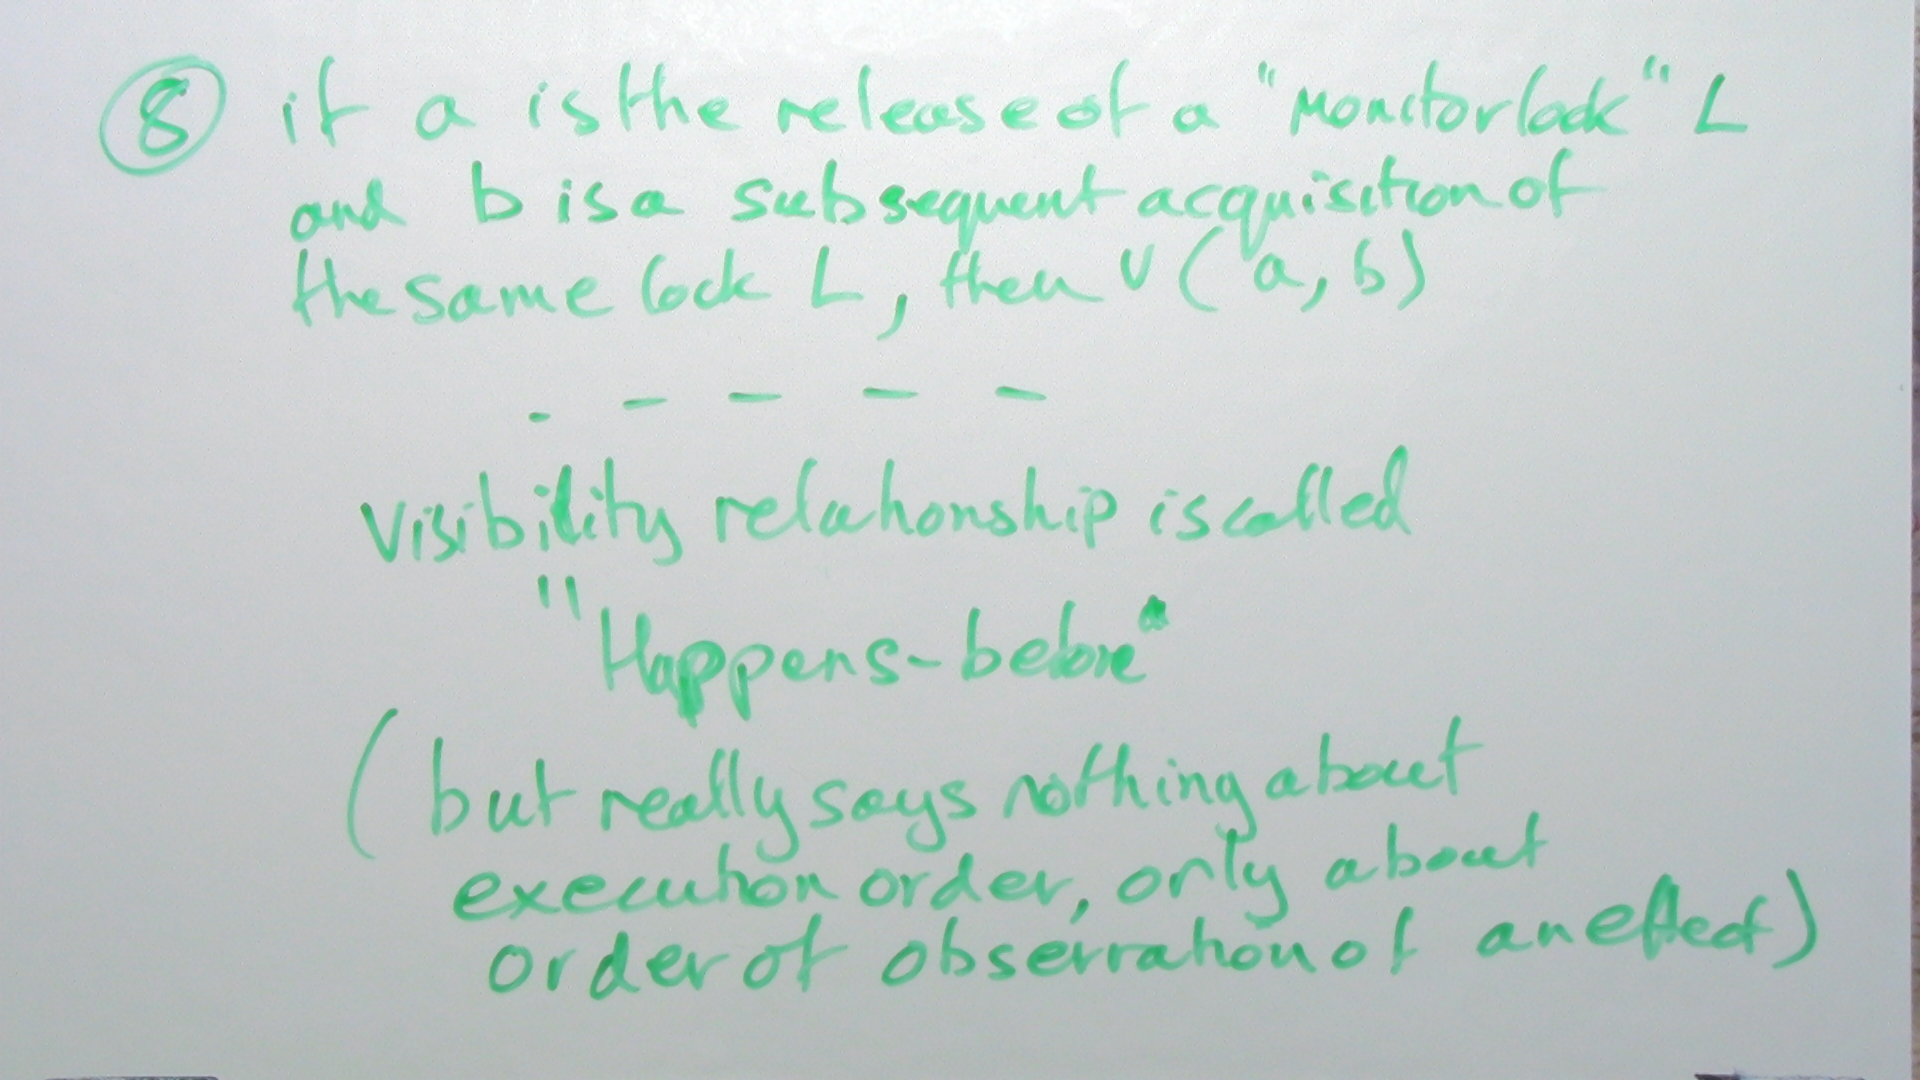 ⑧ if a is the release of a "Monitor lock" L
and b is a subsequent acquisition of
the same lock L, then V(a, b)
- - - - -
Visibility relationship is called
"Happens-before"
(but really says nothing about
execution order, only about
order of observation of an effect)